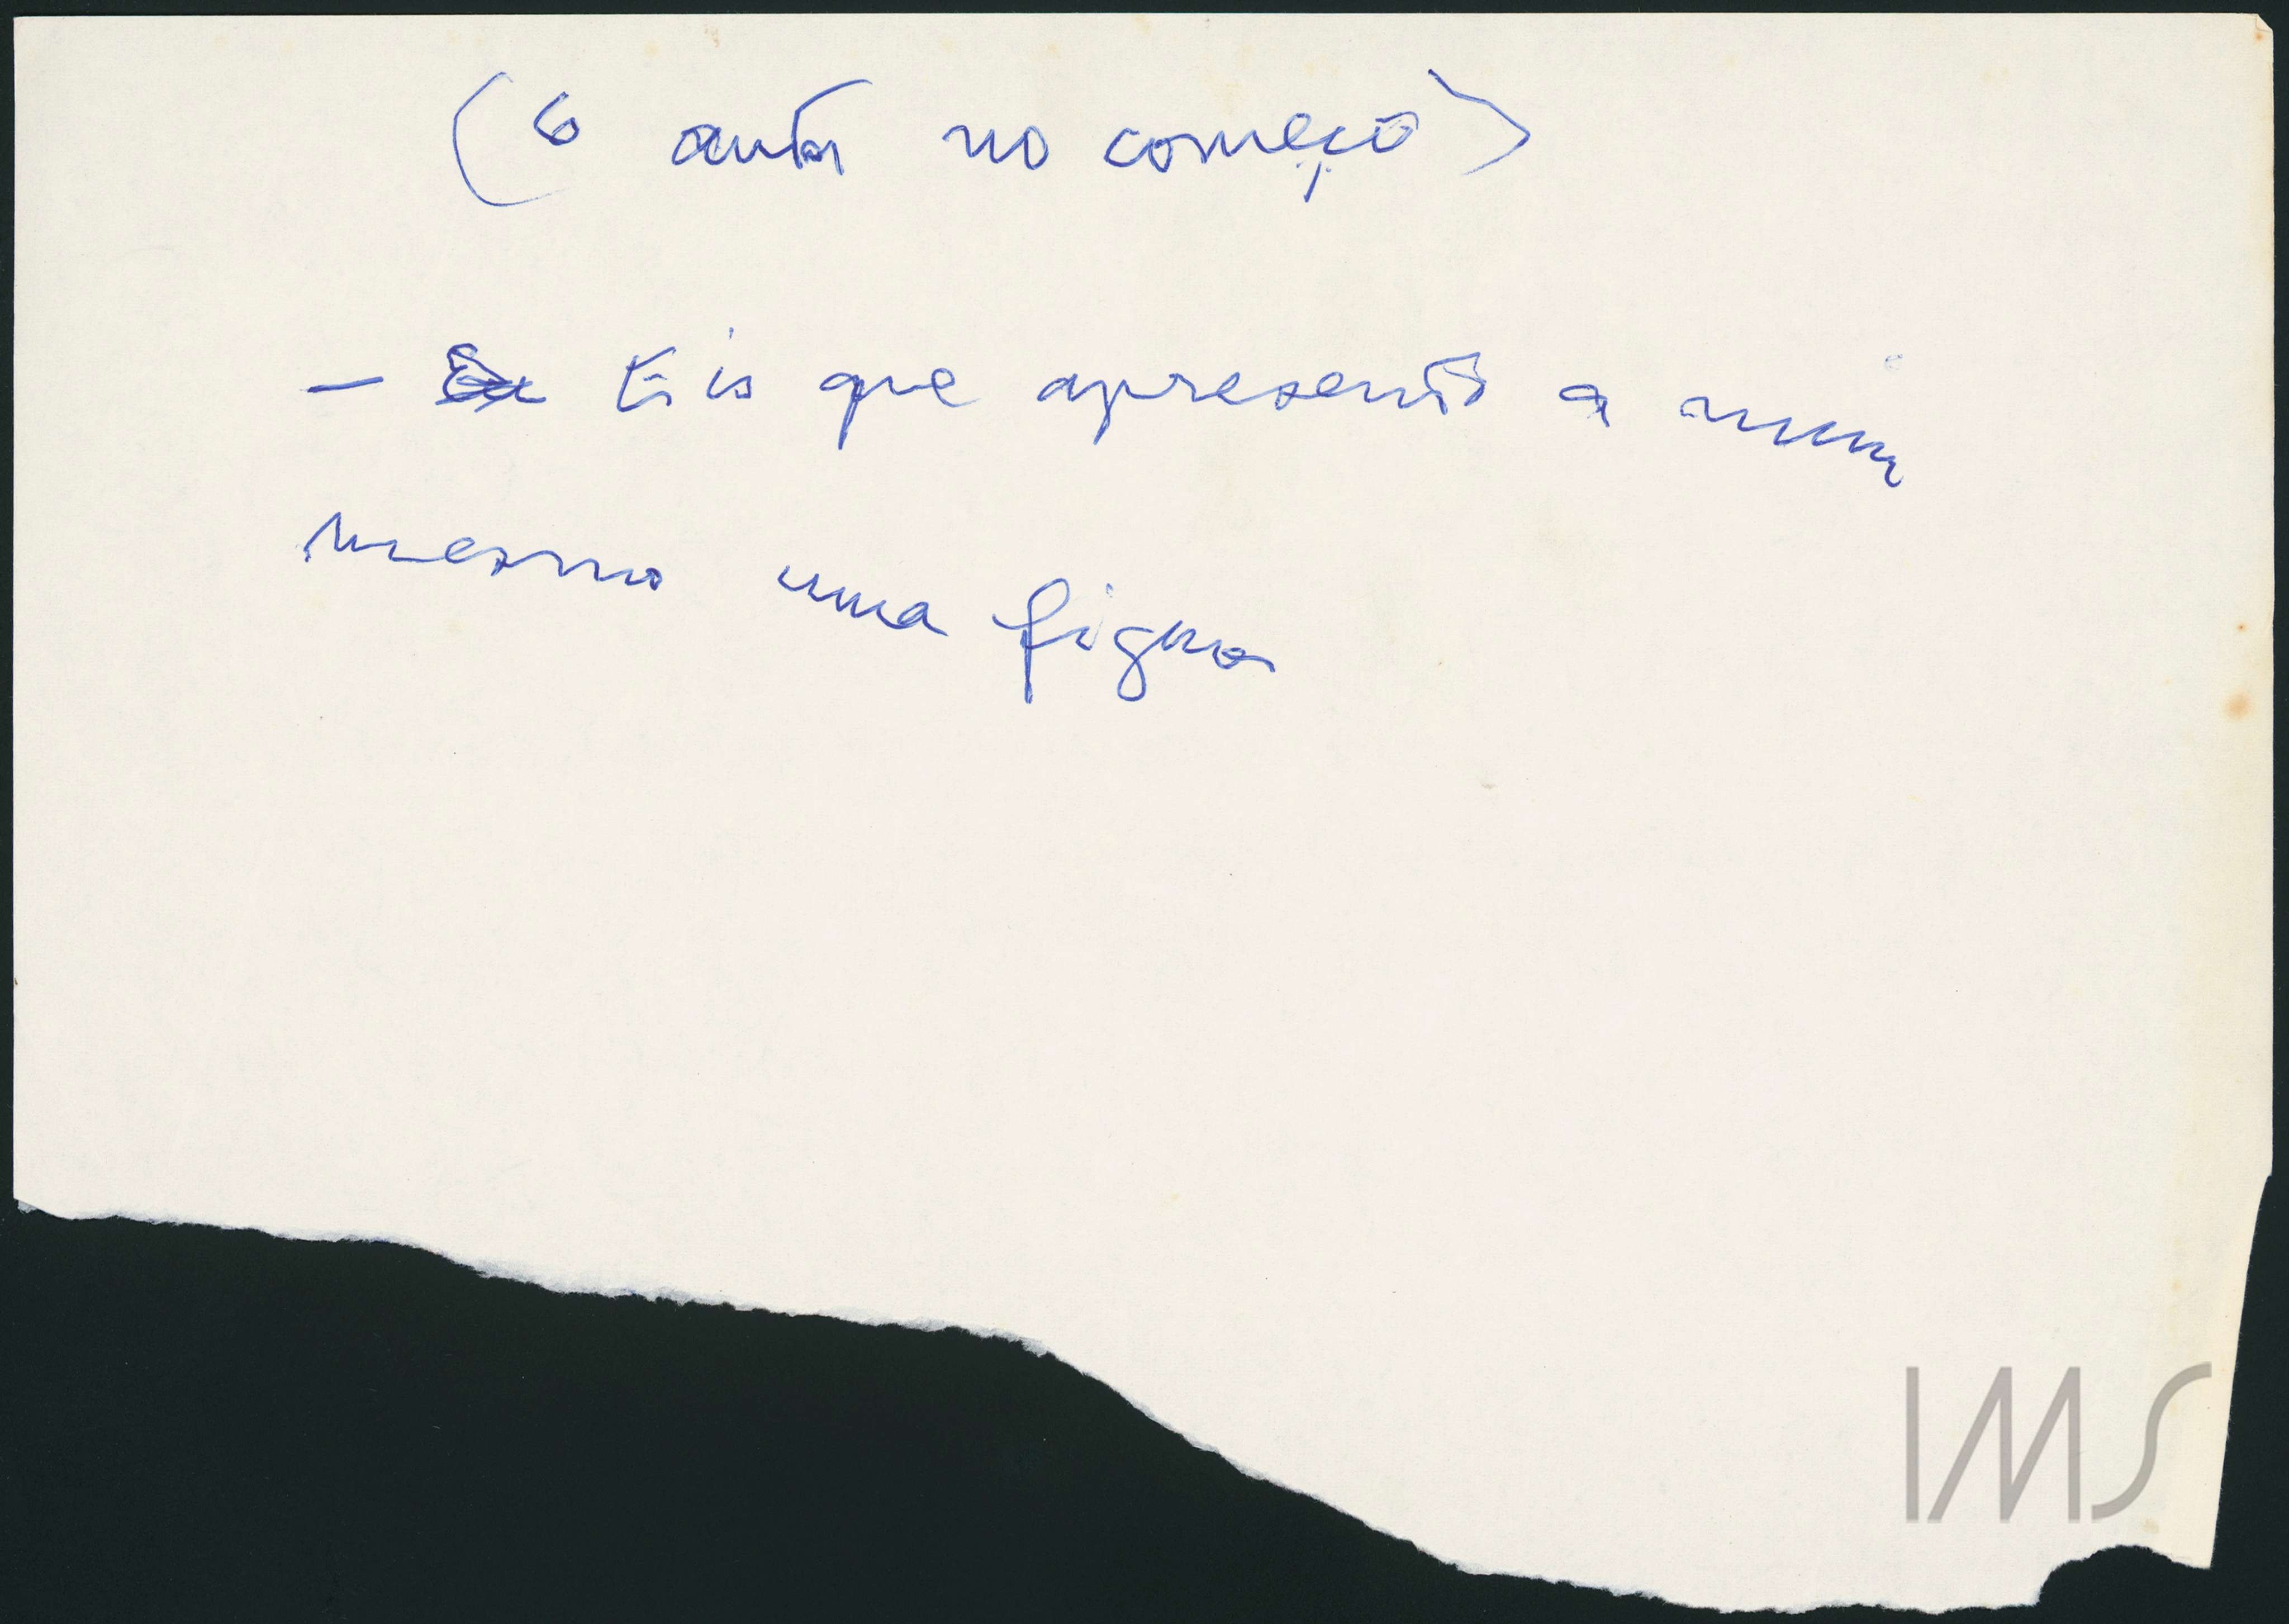 (o autor no começo)
- Eu Eis que apresento a mim
mesmo uma figura
IMS